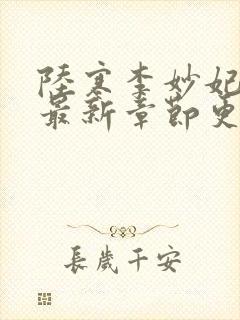 陸寒李妙妃
最新章節更
長歲千安